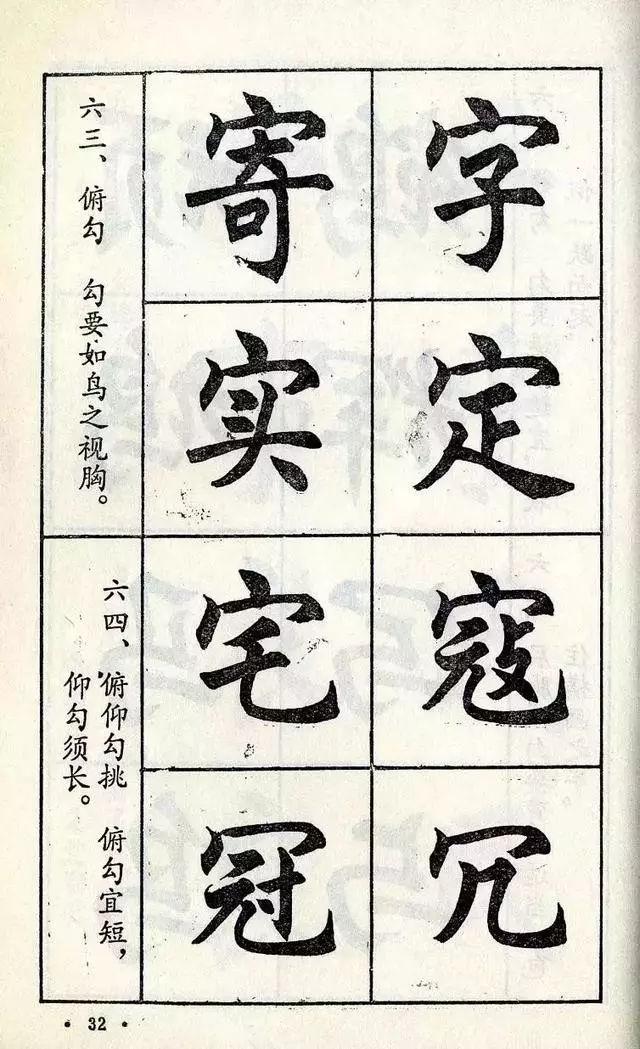 六三、 俯勾 勾要如鸟之视胸。
字定
寄实
六四、 俯仰勾挑 俯勾宜短，
仰勾须长。
寇冗
宅冠
• 32 •